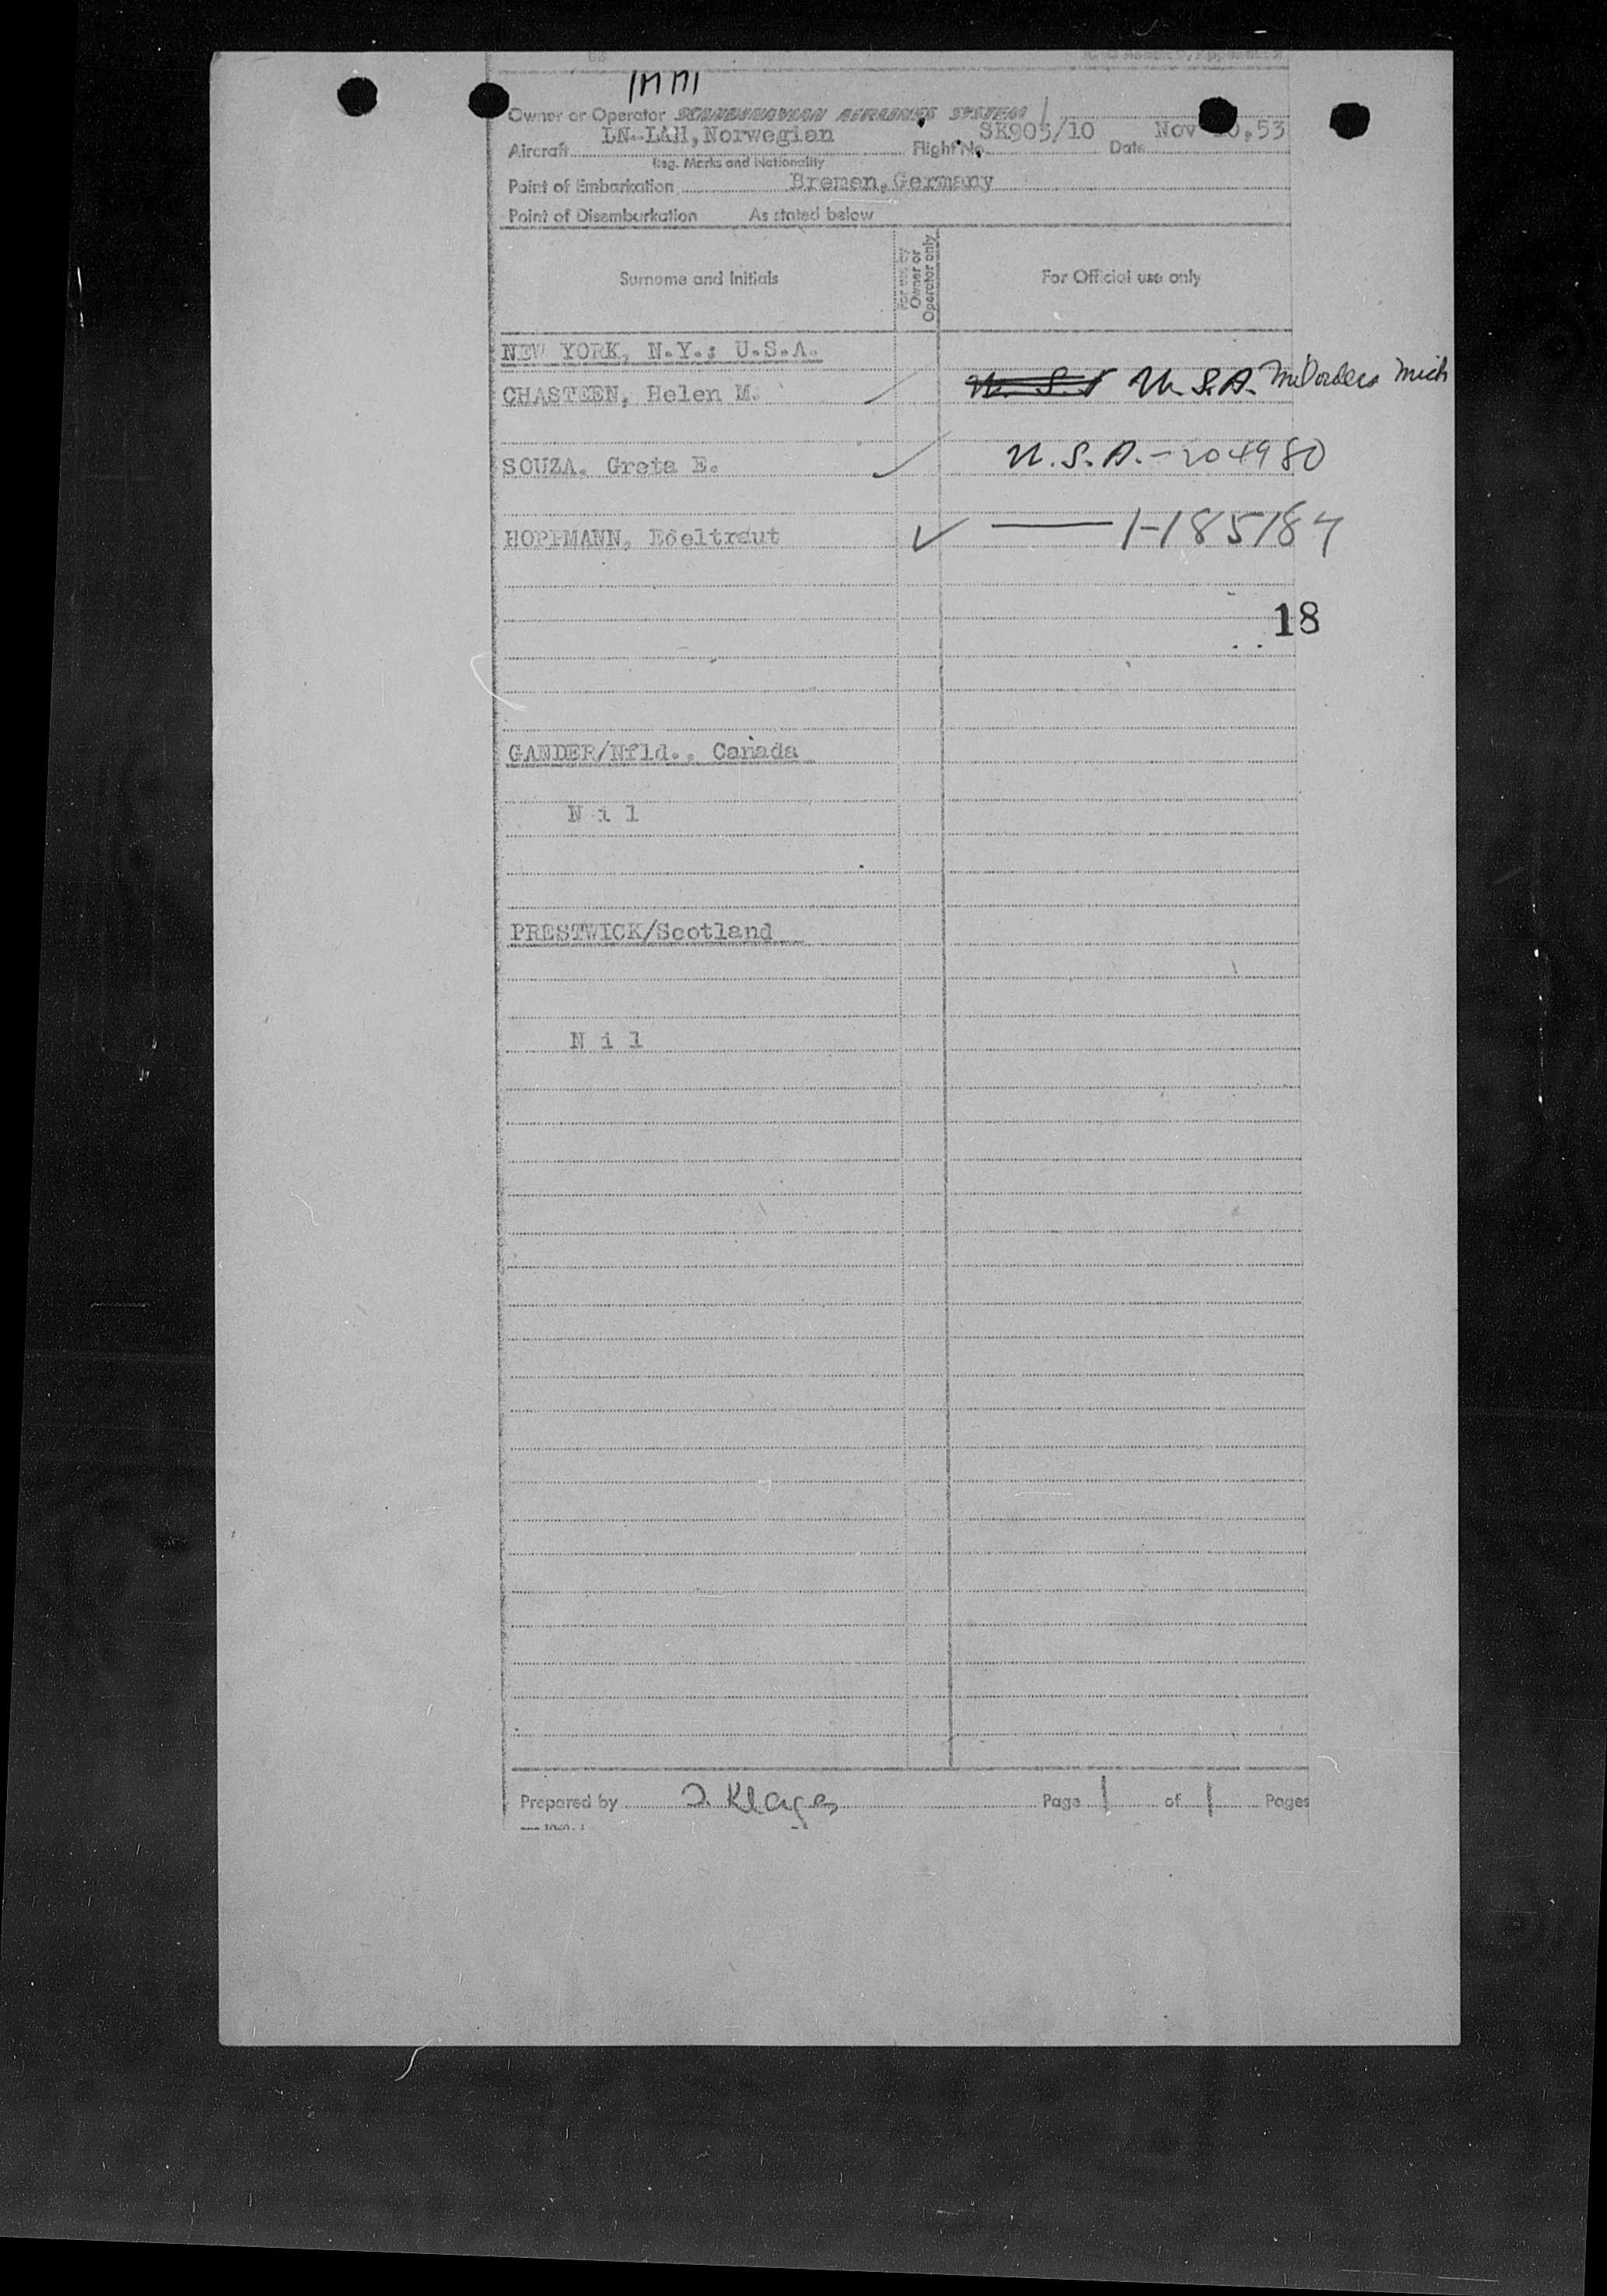 Owner or Operator SCANDINAVIAN AIRLINES SYSTEM
LN-LAH, Norwegian SK903/10 Nov 0,53
Aircraft Flight No. Date
Reg. Marks and Nationality
Point of Embarkation Bremen, Germany
Point of Disembarkation As stated below
Surname and Initials
For use by Owner or Operator only
For Official use only
NEW YORK, N.Y.; U.S.A.
CHASTEEN, Helen M. U.S.A. Mil orders Mich
SOUZA, Greta E. U.S.A. - 204980
HOFFMANN, Edeltraut I-185184
18
GANDER/Nfld., Canada
N i l
PRESTWICK/Scotland
N i l
Prepared by Klages Page 1 of 1 Pages